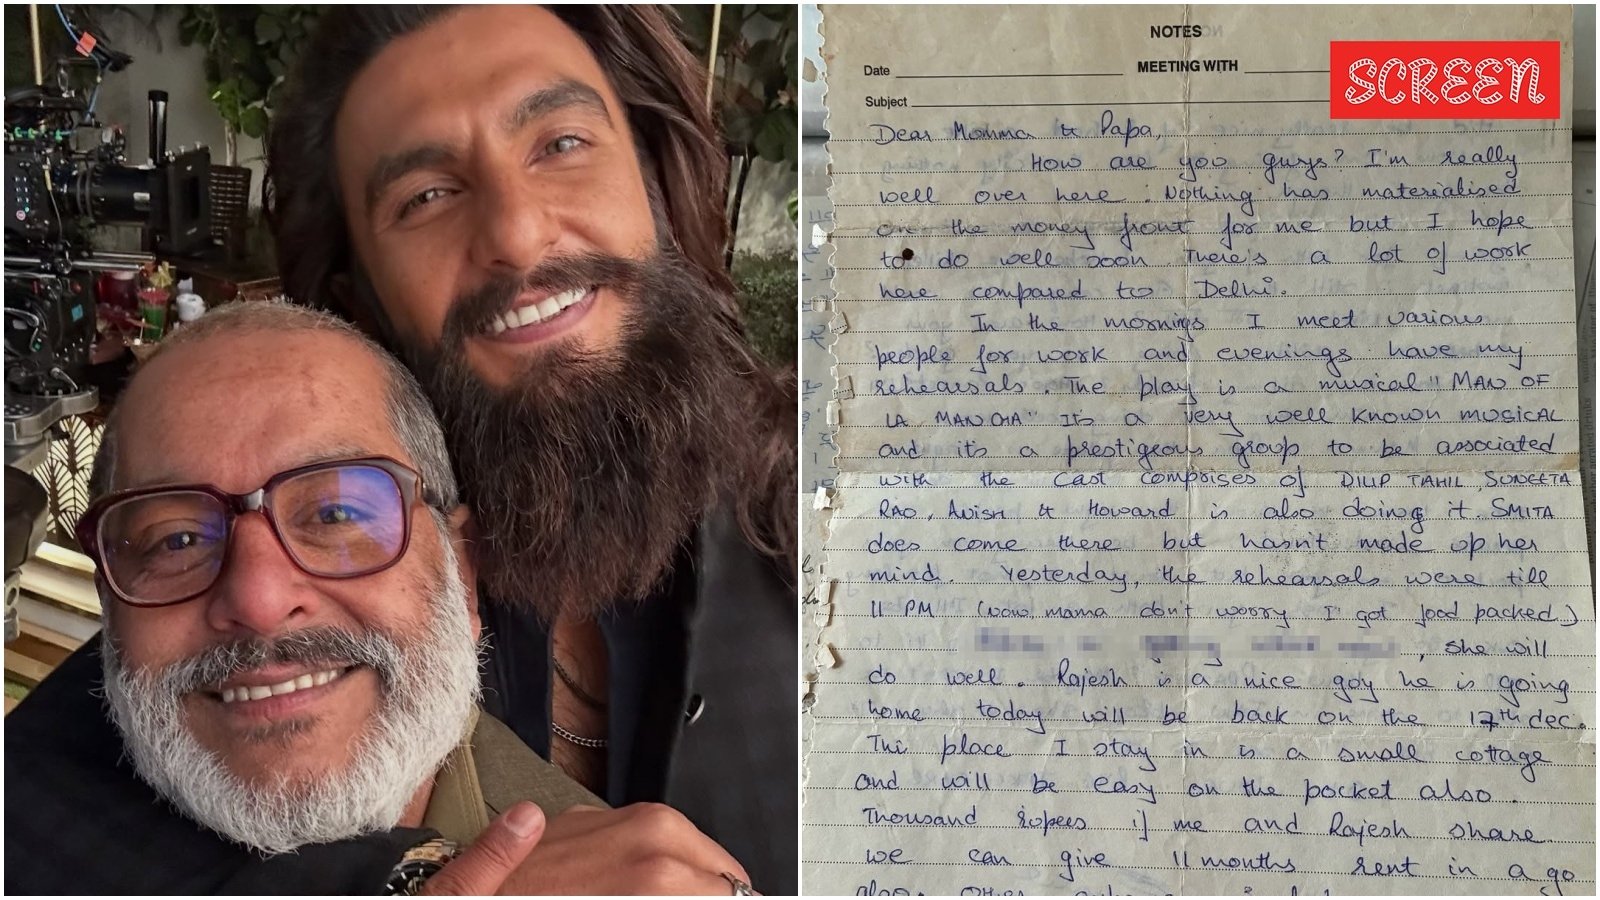 NOTES
Date
MEETING WITH
Subject
SCREEN
Dear Momma & Papa,
How are you guys? I'm really
well over here. Nothing has materialised
on the money front for me but I hope
to do well soon. There's a lot of work
here compared to Delhi.
In the mornings I meet various
people for work and evenings have my
rehearsals. The play is a musical "MAN OF
LA MANCHA" It's a very well known musical
and its a prestigeous group to be associated
with the cast comprises of DILIP TAHIL, SUNEETA
RAO, Avish & Howard is also doing it. SMITA
does come there but hasn't made up her
mind. Yesterday, the rehearsals were till
11 PM (wow, mama don't worry I got food packed)
, she will
do well. Rajesh is a nice guy he is going
home today will be back on the 17th dec.
The place I stay in is a small cottage
and will be easy on the pocket also.
Thousand rupees if me and Rajesh share
we can give 11 months rent in a go
also.